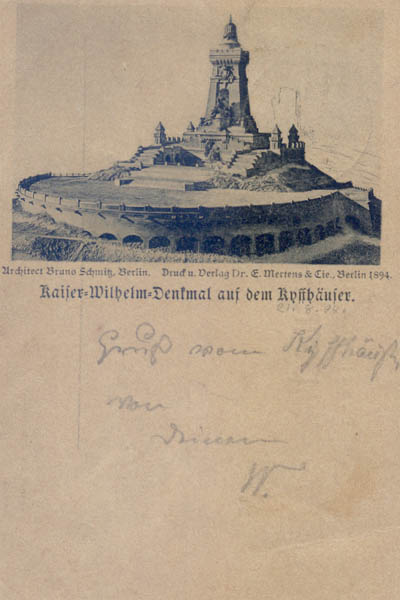 Architect Bruno Schmitz, Berlin. Druck u. Verlag Dr. E. Mertens & Cie., Berlin 1894.
Kaiser-Wilhelm-Denkmal auf dem Kyffhäuser.
Gruß vom Kyffhäuser
von
Deinem
W.